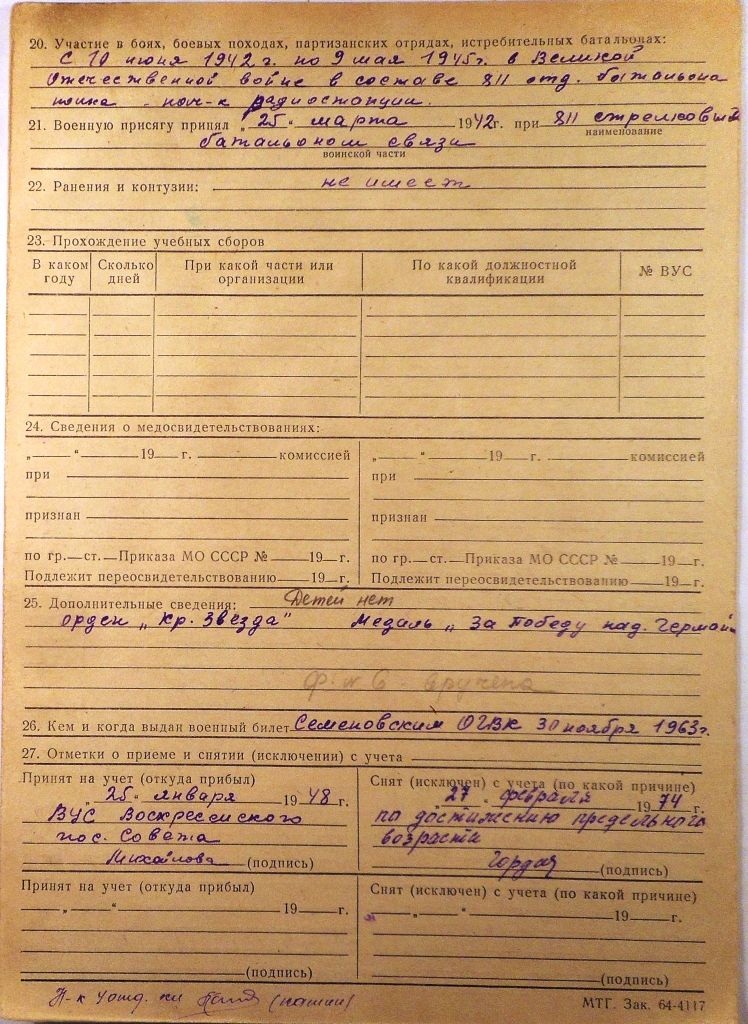 20. Участие в боях, боевых походах, партизанских отрядах, истребительных батальонах:
С 10 июня 1942 г. по 9 мая 1945 г. в Великой
Отечественной войне в составе 811 отд. батальона
нач-к радиостанции.
21. Военную присягу принял „25“ марта 1942 г. при 811 стрелковым
наименование
батальоном связи
воинской части
22. Ранения и контузии: не имеет
23. Прохождение учебных сборов
В каком году Сколько дней При какой части или организации По какой должностной квалификации № ВУС
24. Сведения о медосвидетельствованиях:
„ “ 19 г. комиссией „ “ 19 г. комиссией
при при
признан признан
по гр. ст. Приказа МО СССР № 19 г. по гр. ст. Приказа МО СССР № 19 г.
Подлежит переосвидетельствованию 19 г. Подлежит переосвидетельствованию 19 г.
25. Дополнительные сведения: Детей нет
орден „Кр. Звезда" Медаль „За Победу над. Герман
ф. № 6 вручена
26. Кем и когда выдан военный билет Семеновским ОГВК 30 ноября 1963 г.
27. Отметки о приеме и снятии (исключении) с учета
Принят на учет (откуда прибыл)
„25“ января 1948 г.
ВУС Воскресенского
пос. Совета
Михайлова (подпись)
Снят (исключен) с учета (по какой причине)
„27“ февраля 1974 г.
по достижению предельного
возраста
(подпись)
Принят на учет (откуда прибыл)
„ “ 19 г.
(подпись)
Снят (исключен) с учета (по какой причине)
„ “ 19 г.
(подпись)
Н-к 4 отд.
МТГ. Зак. 64-4117